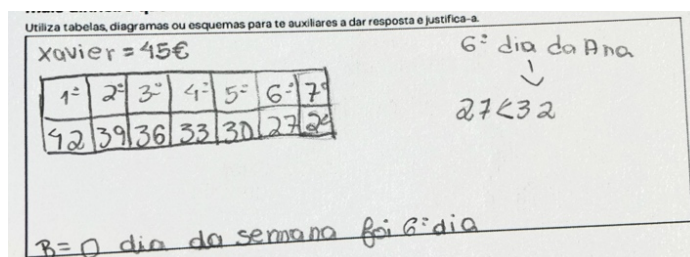 Utiliza tabelas, diagramas ou esquemas para te auxiliares a dar resposta e justifica-a.
Xavier = 45€
6º dia da Ana
1º 2º 3º 4º 5º 6º 7º
42 39 36 33 30 27 24
27<32
R= O dia da semana foi 6º dia